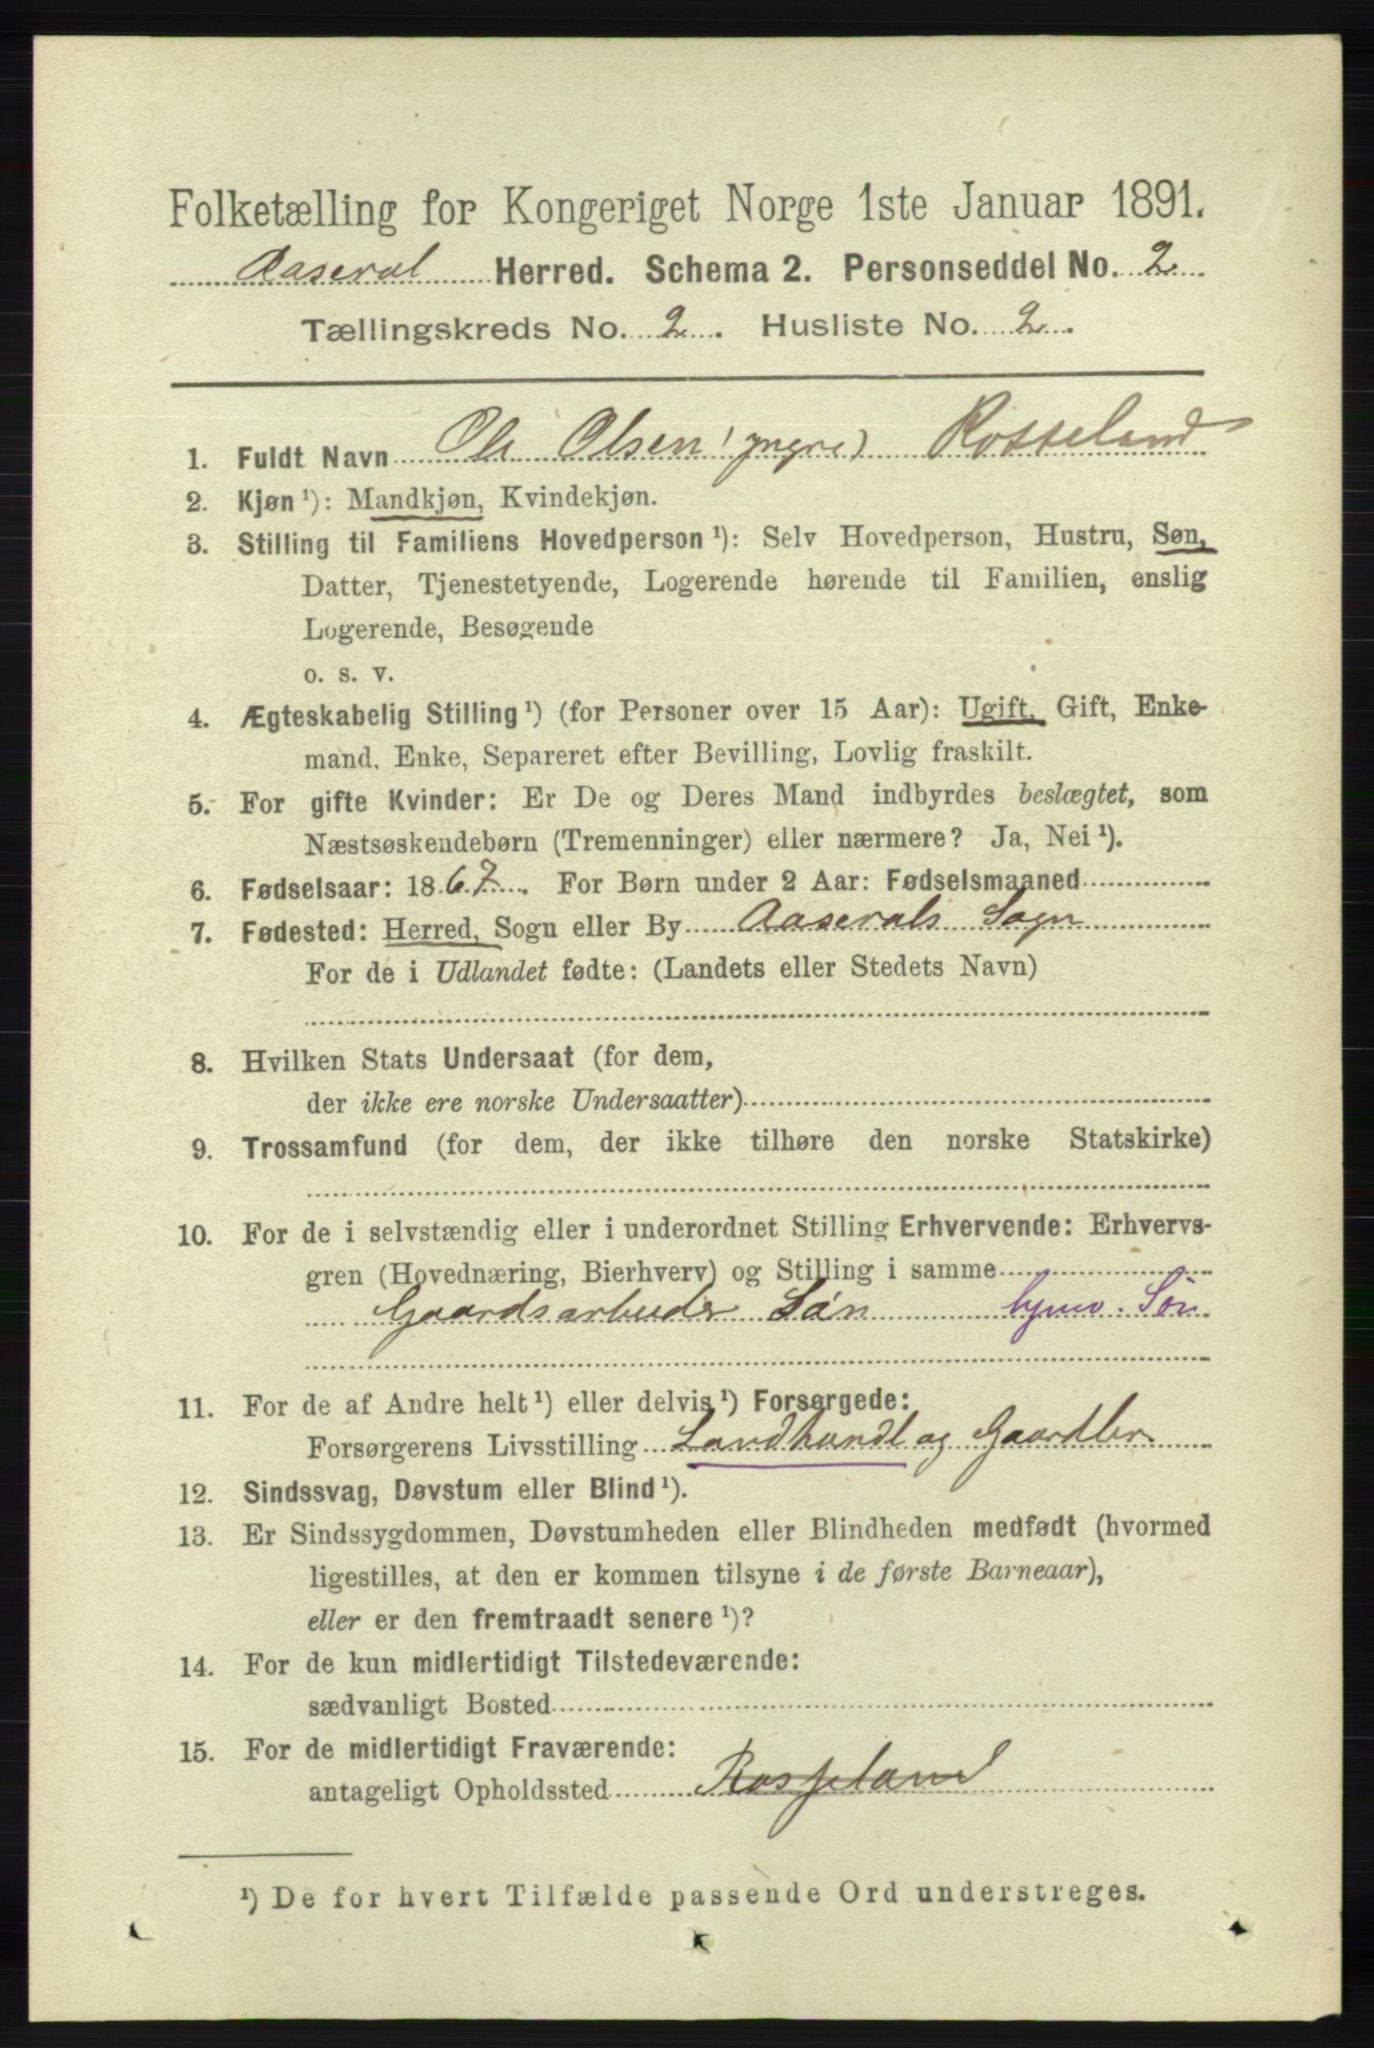 Folketælling for Kongeriget Norge 1ste Januar 1891.
Aaseral Herred. Schema 2. Personseddel No. 2
Tællingskreds No. 2. Husliste No. 2.
1. Fuldt Navn Ole Olsen (yngre) Rosseland
2. Kjøn ¹): Mandkjøn, Kvindekjøn.
3. Stilling til Familiens Hovedperson ¹): Selv Hovedperson, Hustru, Søn,
Datter, Tjenestetyende, Logerende hørende til Familien, enslig
Logerende, Besøgende
o. s. v.
4. Ægteskabelig Stilling ¹) (for Personer over 15 Aar): Ugift, Gift, Enke-
mand, Enke, Separeret efter Bevilling, Lovlig fraskilt.
5. For gifte Kvinder: Er De og Deres Mand indbyrdes beslægtet, som
Næstsøskendebørn (Tremenninger) eller nærmere? Ja, Nei ¹).
6. Fødselsaar: 1867. For Børn under 2 Aar: Fødselsmaaned
7. Fødested: Herred, Sogn eller By Aaserals Sogn
For de i Udlandet fødte: (Landets eller Stedets Navn)
8. Hvilken Stats Undersaat (for dem,
der ikke ere norske Undersaatter)
9. Trossamfund (for dem, der ikke tilhøre den norske Statskirke)
10. For de i selvstændig eller i underordnet Stilling Erhvervende: Erhvervs-
gren (Hovednæring, Bierhverv) og Stilling i samme
Gaardsarbeider Søn Søn
11. For de af Andre helt ¹) eller delvis ¹) Forsørgede:
Forsørgerens Livsstilling Landhandl og Gaardbr
12. Sindssvag, Døvstum eller Blind ¹).
13. Er Sindssygdommen, Døvstumheden eller Blindheden medfødt (hvormed
ligestilles, at den er kommen tilsyne i de første Barneaar),
eller er den fremtraadt senere ¹)?
14. For de kun midlertidigt Tilstedeværende:
sædvanligt Bosted
15. For de midlertidigt Fraværende:
antageligt Opholdssted Rosseland
¹) De for hvert Tilfælde passende Ord understreges.